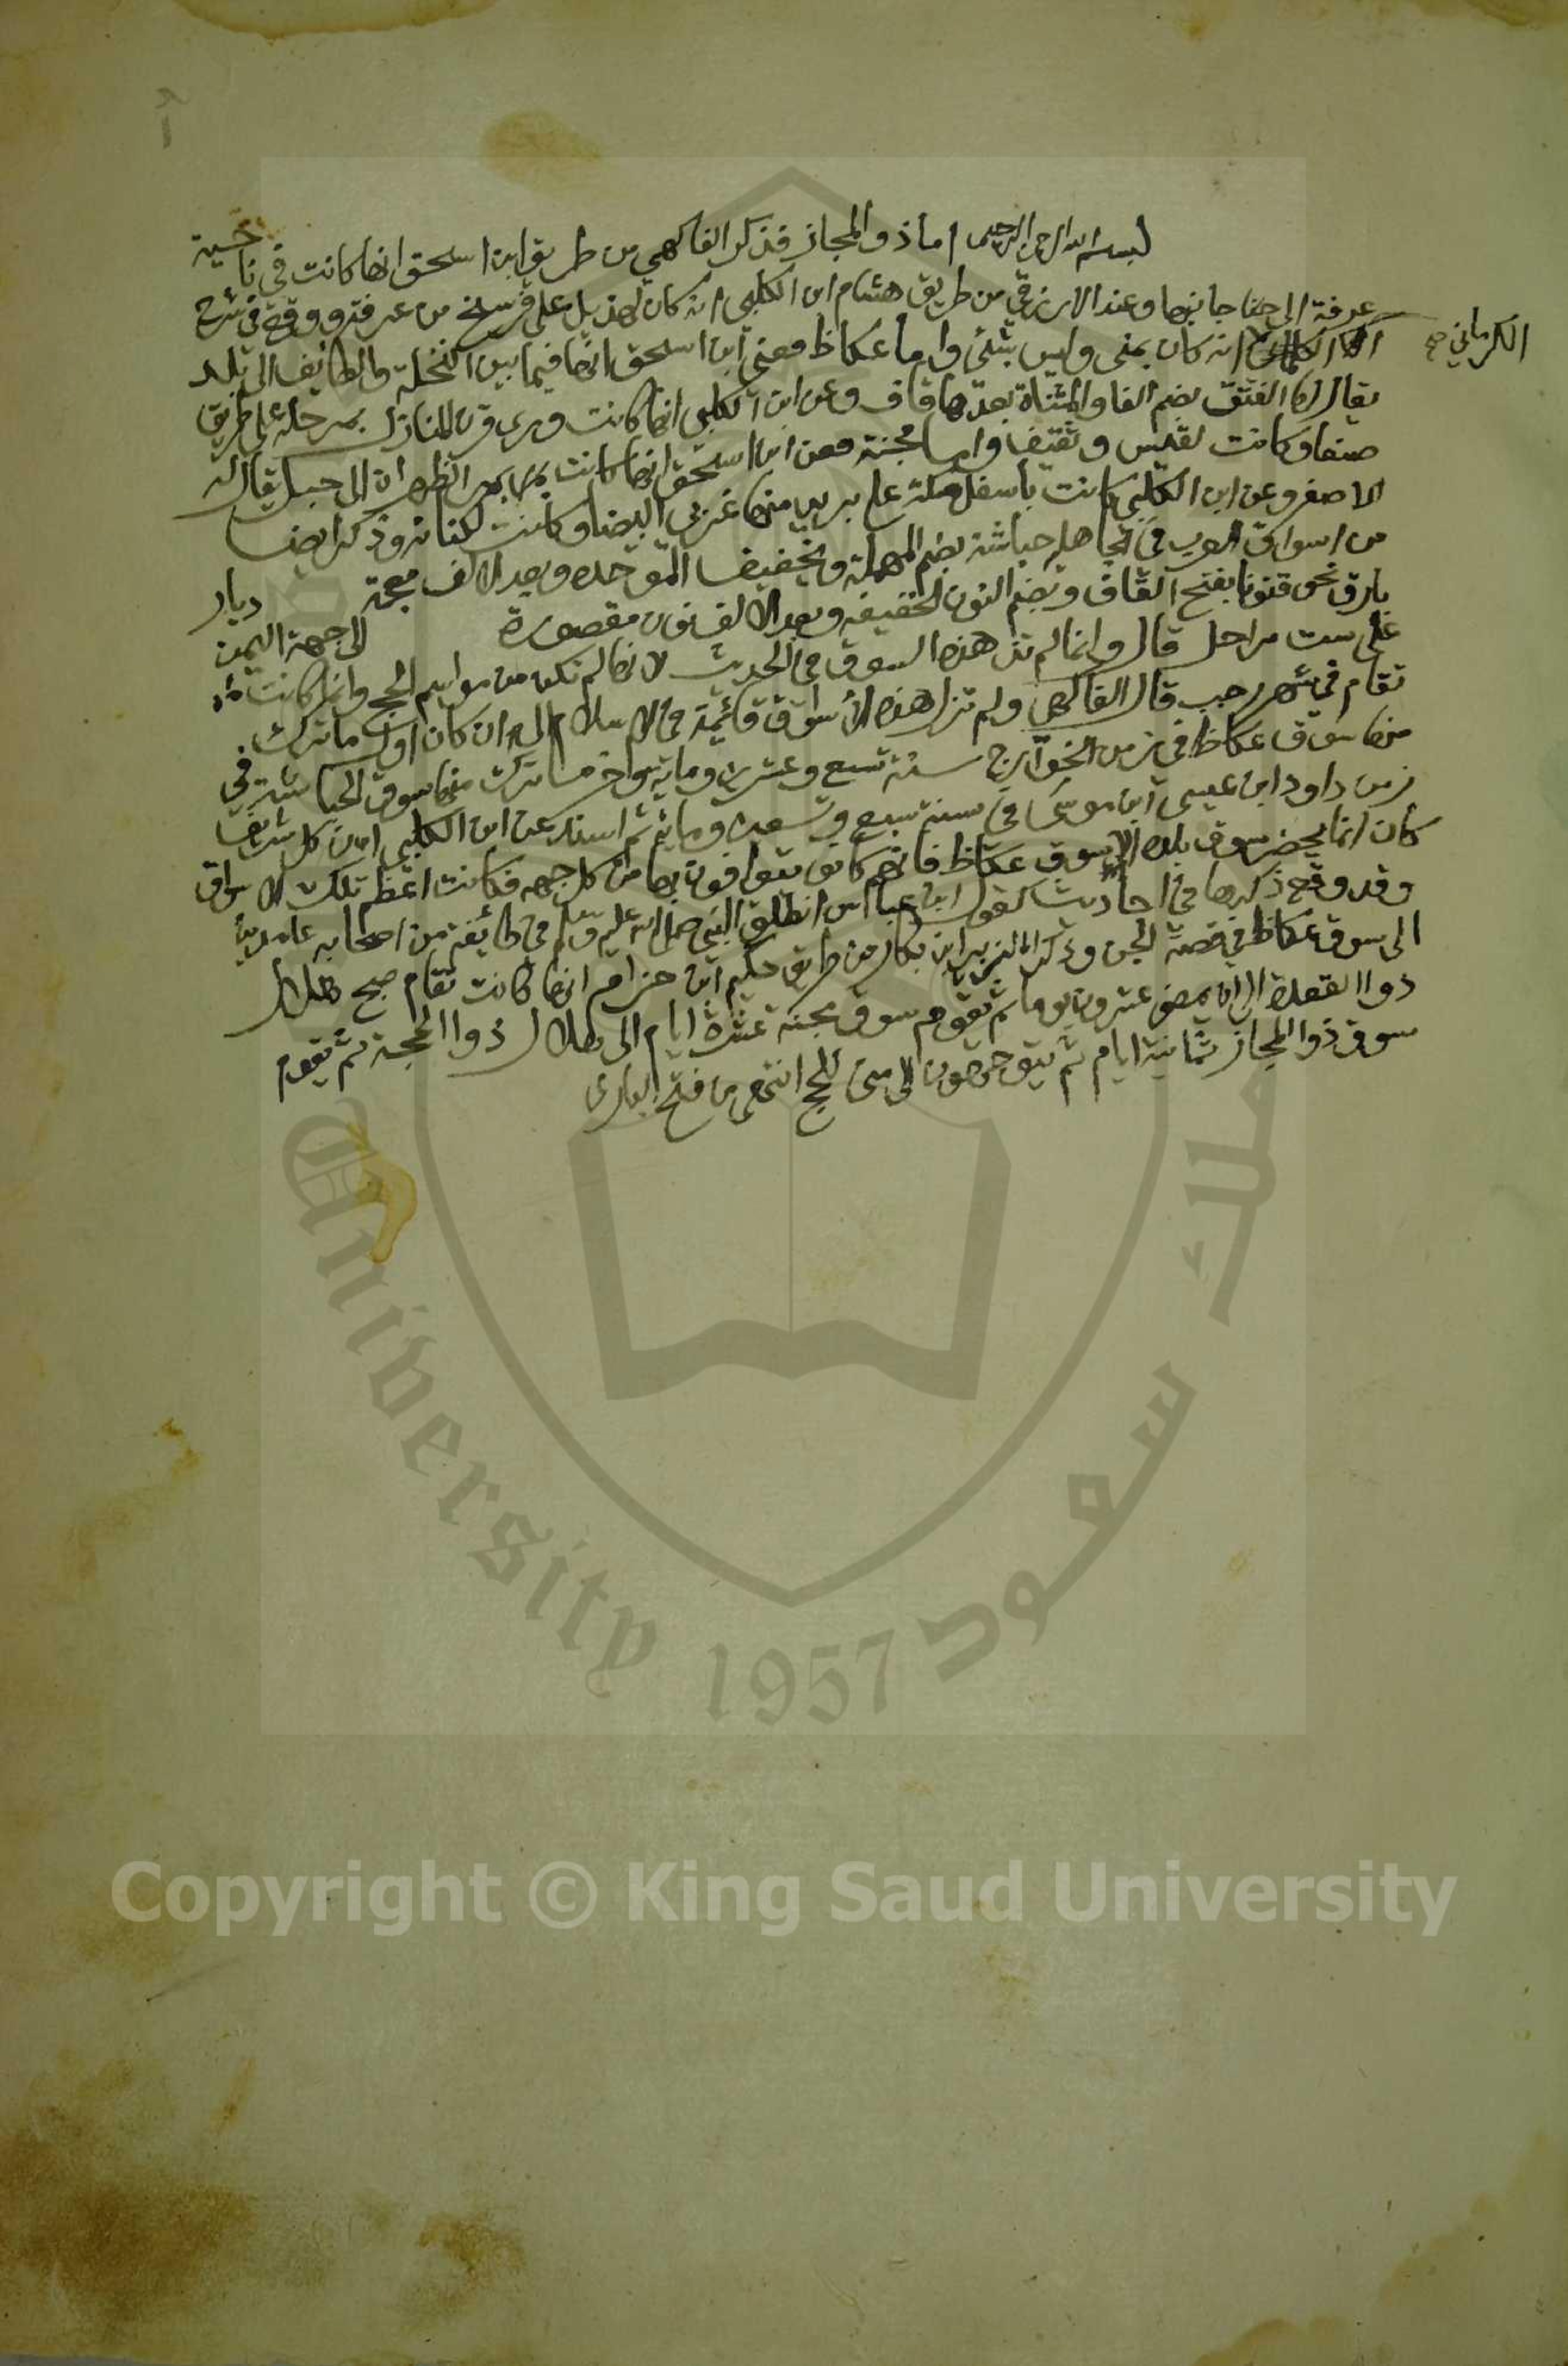 بسم الله الرحمن الرحيم اما ذو المجاز فذكر الفاكهي من طريق ابن اسحق انها كانت في ناحية
عرفة الى جانبها وعند الازرقي من طريق هشام ابن الكلبي انه كان لهذيل على فرسخ من عرفة ووقع في شرح
الكرماني صح
انه كان بمنى وليس بشئ واما عكاظ فعن ابن اسحق انها فيما بين النخلة والطايف الى بلد
يقال لها الفتق بضم الفا والمثناة بعدها قاف وعن ابن الكلبي انها كانت ورى قرن المنازل بمرحلة على طريق
صنعا وكانت لقيس وثقيف واما مجنة فعن ابن اسحق انها كانت بمر الظهران الى جبل يقال له
الاصفر وعن ابن الكلبي كانت باسفل مكة على بريد منها غربي البيضا وكانت لكنانة وذكر ايضا
من اسواق العرب في الجاهلية حباشة بضم المهملة وتخفيف الموحده وبعد الالف معجمة ديار
بارق نحو قنونا بفتح القاف وبضم النون الخفيفه وبعد الالف نون مقصورة الى جهة اليمن
على ست مراحل قال وانما لم تذكر هذه السوق في الحديث لانها لم تكن من مواسم الحج وانما كانت
تقام في شهر رجب قال الفاكهي ولم تزل هذه الأسواق قائمة في الاسلام الى ان كان اول ما ترك
منها سوق عكاظ في زمن الخوارج سنة تسع وعشرين وماية واخر ما ترك منها سوق الحباشة في
زمن داود ابن عيسى ابن موسى في سنة سبع وتسعين وماية ثم اسند عن ابن الكلبي ان كل شريف
كان انما يحضر سوق بلده الا سوق عكاظ فانهم كانو يتوافون بها من كل جهه فكانت اعظم تلك الاسواق
وقد وقع ذكرها في احاديث كقول ابن عباس انطلق النبي صلى الله عليه وسلم في طائفة من اصحابه عامدين
الى سوق عكاظ في قصة الجن وذكر الزبير ابن بكار من طريق حكيم ابن حزام انها كانت تقام صبح هلال
ذوا القعدة الى ان يمضي عشرون يوما ثم تقوم سوق مجنة عشرة ايام الى هلال ذوا الحجة ثم يقوم
سوق ذوا المجاز ثمانية ايام ثم يتوجهون الى منى للحج انتهى من فتح البارى
University 1957
ملك سعود
Copyright © King Saud University